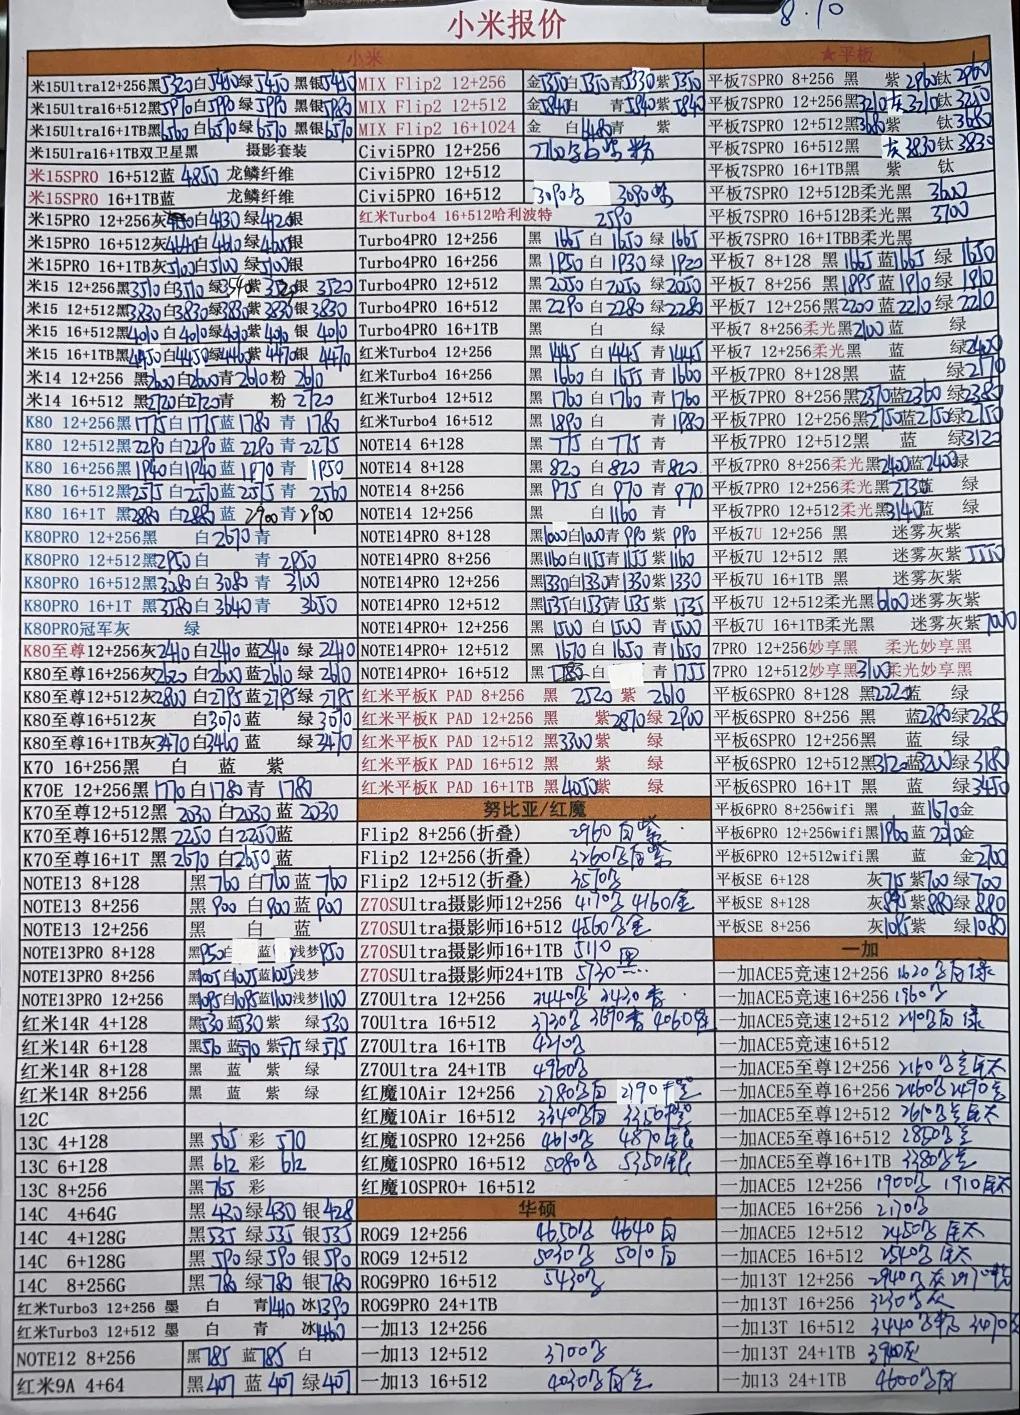 8.10
小米报价
小米
米15Ultra12+256黑5320白5410绿5450 黑银5410
米15Ultra16+512黑5970白5990绿5990 黑银5980
米15Ultra16+1TB黑6560白6570绿6570 黑银6570
米15Ulra16+1TB双卫星黑 摄影套装
米15SPRO 16+512蓝 4850 龙鳞纤维
米15SPRO 16+1TB蓝 龙鳞纤维
米15PRO 12+256灰 白4130绿4120银
米15PRO 16+512灰4640白4610绿 银
米15PRO 16+1TB灰5100白5100绿5100银
米15 12+256黑3510白3510绿3540紫3520银 3520
米15 12+512黑3830白3830绿3830紫3830银 3830
米15 16+512黑4010白4010绿4010紫4010银 4010
米15 16+1TB黑4450白4450绿4460紫4470银 4470
米14 12+256 黑2600白2600青2610粉 2610
米14 16+512 黑2720白2720青 粉 2720
K80 12+256黑1775白1775蓝1780 青 1780
K80 12+512黑2290白2290蓝 2290青 2275
K80 16+256黑1940白1940蓝 1970 青 1950
K80 16+512黑2575白2570蓝 2575青 2560
K80 16+1T 黑2880白2880蓝 2900青2900
K80PRO 12+256黑 白2670青
K80PRO 12+512黑2950白 青 2950
K80PRO 16+512黑3080白3080青 3100
K80PRO 16+1T 黑3580白3640青 3650
K80PRO冠军灰 绿
K80至尊12+256灰2410白2410蓝2410 绿 2410
K80至尊16+256灰2620白2600蓝2610绿 2610
K80至尊12+512灰2800白2795蓝2785绿2785
K80至尊16+512灰 白3070蓝 绿3070
K80至尊16+1TB灰3470白3460蓝 绿3470
K70 16+256黑 白 蓝 紫
K70E 12+256黑1770白1780青 1780
K70至尊12+512黑2030 白2030蓝 2030
K70至尊16+512黑2250 白2250蓝
K70至尊16+1T 黑2670 白2650蓝
NOTE13 8+128 黑760 白760蓝 760
NOTE13 8+256 黑 900 白900蓝 900
NOTE13 12+256 黑 白 蓝
NOTE13PRO 8+128 黑950白 蓝 浅梦950
NOTE13PRO 8+256 黑1005白1005蓝1005浅梦
NOTE13PRO 12+256 黑1095白1095蓝1100浅梦1100
红米14R 4+128 黑530 蓝530紫 绿530
红米14R 6+128 黑570 蓝570 紫575绿575
红米14R 8+128 黑 蓝 紫 绿
红米14R 8+256 黑 蓝 紫 绿
12C
13C 4+128 黑 565 彩 570
13C 6+128 黑 612 彩 612
13C 8+256 黑 765 彩
14C 4+64G 黑 430绿430 银428
14C 4+128G 黑 535绿535 银535
14C 6+128G 黑 590绿590 银590
14C 8+256G 黑 780绿780 银780
红米Turbo3 12+256 墨 白 青1410 冰1390
红米Turbo3 12+512 墨 白 青 冰1460
NOTE12 8+256 黑785 蓝785 白
红米9A 4+64 黑407 蓝 407 绿407
MIX Flip2 12+256 金5350白5350青5330紫5350
MIX Flip2 12+512 金5840白 青5840紫5840
MIX Flip2 16+1024 金 白6480青 紫
Civi5PRO 12+256
Civi5PRO 12+512
Civi5PRO 16+512 3090 3080紫
红米Turbo4 16+512哈利波特 2590
Turbo4PRO 12+256 黑 1665 白 1650 绿 1665
Turbo4PRO 16+256 黑 1950 白 1930 绿 1920
Turbo4PRO 12+512 黑 2050 白 2050 绿2050
Turbo4PRO 16+512 黑 2290 白 2280 绿 2280
Turbo4PRO 16+1TB 黑 白 绿
红米Turbo4 12+256 黑 1445 白 1445 青1445
红米Turbo4 16+256 黑 1660 白 1655 青 1660
红米Turbo4 12+512 黑 1760 白 1760 青 1760
红米Turbo4 16+512 黑 1890 白 青 1980
NOTE14 6+128 黑 775 白 775 青
NOTE14 8+128 黑 820 白 820 青820
NOTE14 8+256 黑 975 白 970 青 970
NOTE14 12+256 黑 白1160 青
NOTE14PRO 8+128 黑1000白1000青990 紫 990
NOTE14PRO 8+256 黑1160白1155青1155紫1160
NOTE14PRO 12+256 黑1330白1330青1330紫1330
NOTE14PRO 12+512 黑1535白1535青1535紫 1535
NOTE14PRO+ 12+256 黑 1500 白1500 青 1500
NOTE14PRO+ 12+512 黑 1670 白1650 青1650
NOTE14PRO+ 16+512 黑 1785 白 青1755
红米平板K PAD 8+256 黑 2520 紫 2610
红米平板K PAD 12+256 黑 紫2870绿 2900
红米平板K PAD 12+512 黑3300紫 绿
红米平板K PAD 16+512 黑 紫 绿
红米平板K PAD 16+1TB 黑4050紫 绿
努比亚/红魔
Flip2 8+256(折叠) 2960
Flip2 12+256(折叠) 3260
Flip2 12+512(折叠) 3570
Z70SUltra摄影师12+256 4170 4160金
Z70SUltra摄影师16+512 4560
Z70SUltra摄影师16+1TB 5110
Z70SUltra摄影师24+1TB 5730黑
Z70Ultra 12+256 3440 3430
70Ultra 16+512 3730 3690 4060
Z70Ultra 16+1TB 4210
Z70Ultra 24+1TB 4960
红魔10Air 12+256 2780 2790
红魔10Air 16+512 3340 3350
红魔10SPRO 12+256 4610 4870
红魔10SPRO 16+512 5080 5350
红魔10SPRO+ 16+512
华硕
ROG9 12+256 4650 4640白
ROG9 12+512 5030 5010白
ROG9PRO 16+512 5430
ROG9PRO 24+1TB
一加13 12+256
一加13 12+512 3700
一加13 16+512 4030
★平板
平板7SPRO 8+256 黑 紫 2960钛2960
平板7SPRO 12+256黑3210灰3210钛 3250
平板7SPRO 12+512黑3680紫 钛 3680
平板7SPRO 16+512黑 灰3830钛3830
平板7SPRO 16+1TB黑 紫 钛
平板7SPRO 12+512B柔光黑 3600
平板7SPRO 16+512B柔光黑 3700
平板7SPRO 16+1TBB柔光黑
平板7 8+128 黑1665蓝1665 绿 1650
平板7 8+256 黑1895蓝1910 绿 1910
平板7 12+256黑2200蓝2210 绿 2210
平板7 8+256柔光黑2100蓝 绿
平板7 12+256柔光黑 蓝 绿2400
平板7PRO 8+128黑 蓝 绿2170
平板7PRO 8+256黑2370蓝2360 绿2380
平板7PRO 12+256黑2750蓝2750绿2750
平板7PRO 12+512黑 蓝 绿3120
平板7PRO 8+256柔光黑2400蓝2400绿
平板7PRO 12+256柔光黑2730蓝 绿
平板7PRO 12+512柔光黑3140蓝 绿
平板7U 12+256 黑 迷雾灰紫
平板7U 12+512 黑 迷雾灰紫5550
平板7U 16+1TB 黑 迷雾灰紫
平板7U 12+512柔光黑6100迷雾灰紫
平板7U 16+1TB柔光黑 迷雾灰紫7000
7PRO 12+256妙享黑 柔光妙享黑
7PRO 12+512妙享黑3100柔光妙享黑
平板6SPRO 8+128 黑2220蓝 绿
平板6SPRO 8+256 黑 蓝2380绿2380
平板6SPRO 12+256黑 蓝 绿
平板6SPRO 12+512黑3120蓝3200绿3180
平板6SPRO 16+1T 黑 蓝 绿3450
平板6PRO 8+256wifi 黑 蓝1670金
平板6PRO 12+256wifi黑1960蓝 2010金
平板6PRO 12+512wifi黑 蓝 金2700
平板SE 6+128 灰715紫700绿700
平板SE 8+128 灰895紫880绿880
平板SE 8+256 灰1085紫 绿1080
一加
一加ACE5竞速12+256 1620
一加ACE5竞速16+256 1960
一加ACE5竞速12+512
一加ACE5竞速16+512
一加ACE5至尊12+256 2160
一加ACE5至尊16+256 2460 2490
一加ACE5至尊12+512 2610
一加ACE5至尊16+512 2850
一加ACE5至尊16+1TB 3380
一加ACE5 12+256 1900 1910
一加ACE5 16+256 2170
一加ACE5 12+512 2450
一加ACE5 16+512 2540
一加13T 12+256 2940
一加13T 16+256 3230
一加13T 16+512 3440 3470
一加13T 24+1TB
一加13 24+1TB 4600